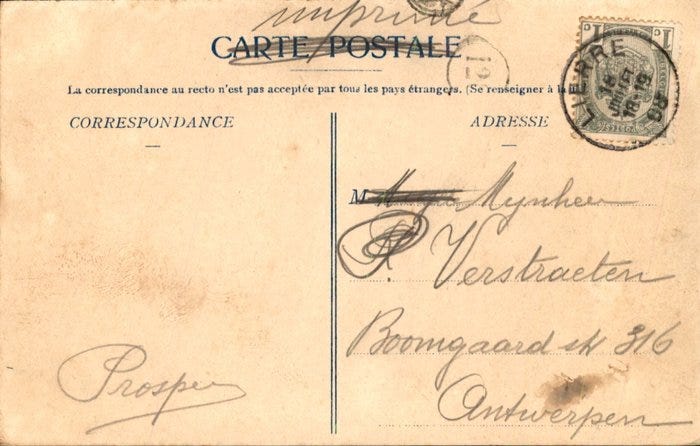 imprimé
CARTE POSTALE
La correspondance au recto n'est pas acceptée par tous les pays étrangers. (Se renseigner à la
CORRESPONDANCE
ADRESSE
LIERRE
18
18-19
08
1c 1c
19
M Mynheer
P. Verstraeten
Boomgaard str 316
Antwerpen
Prosper